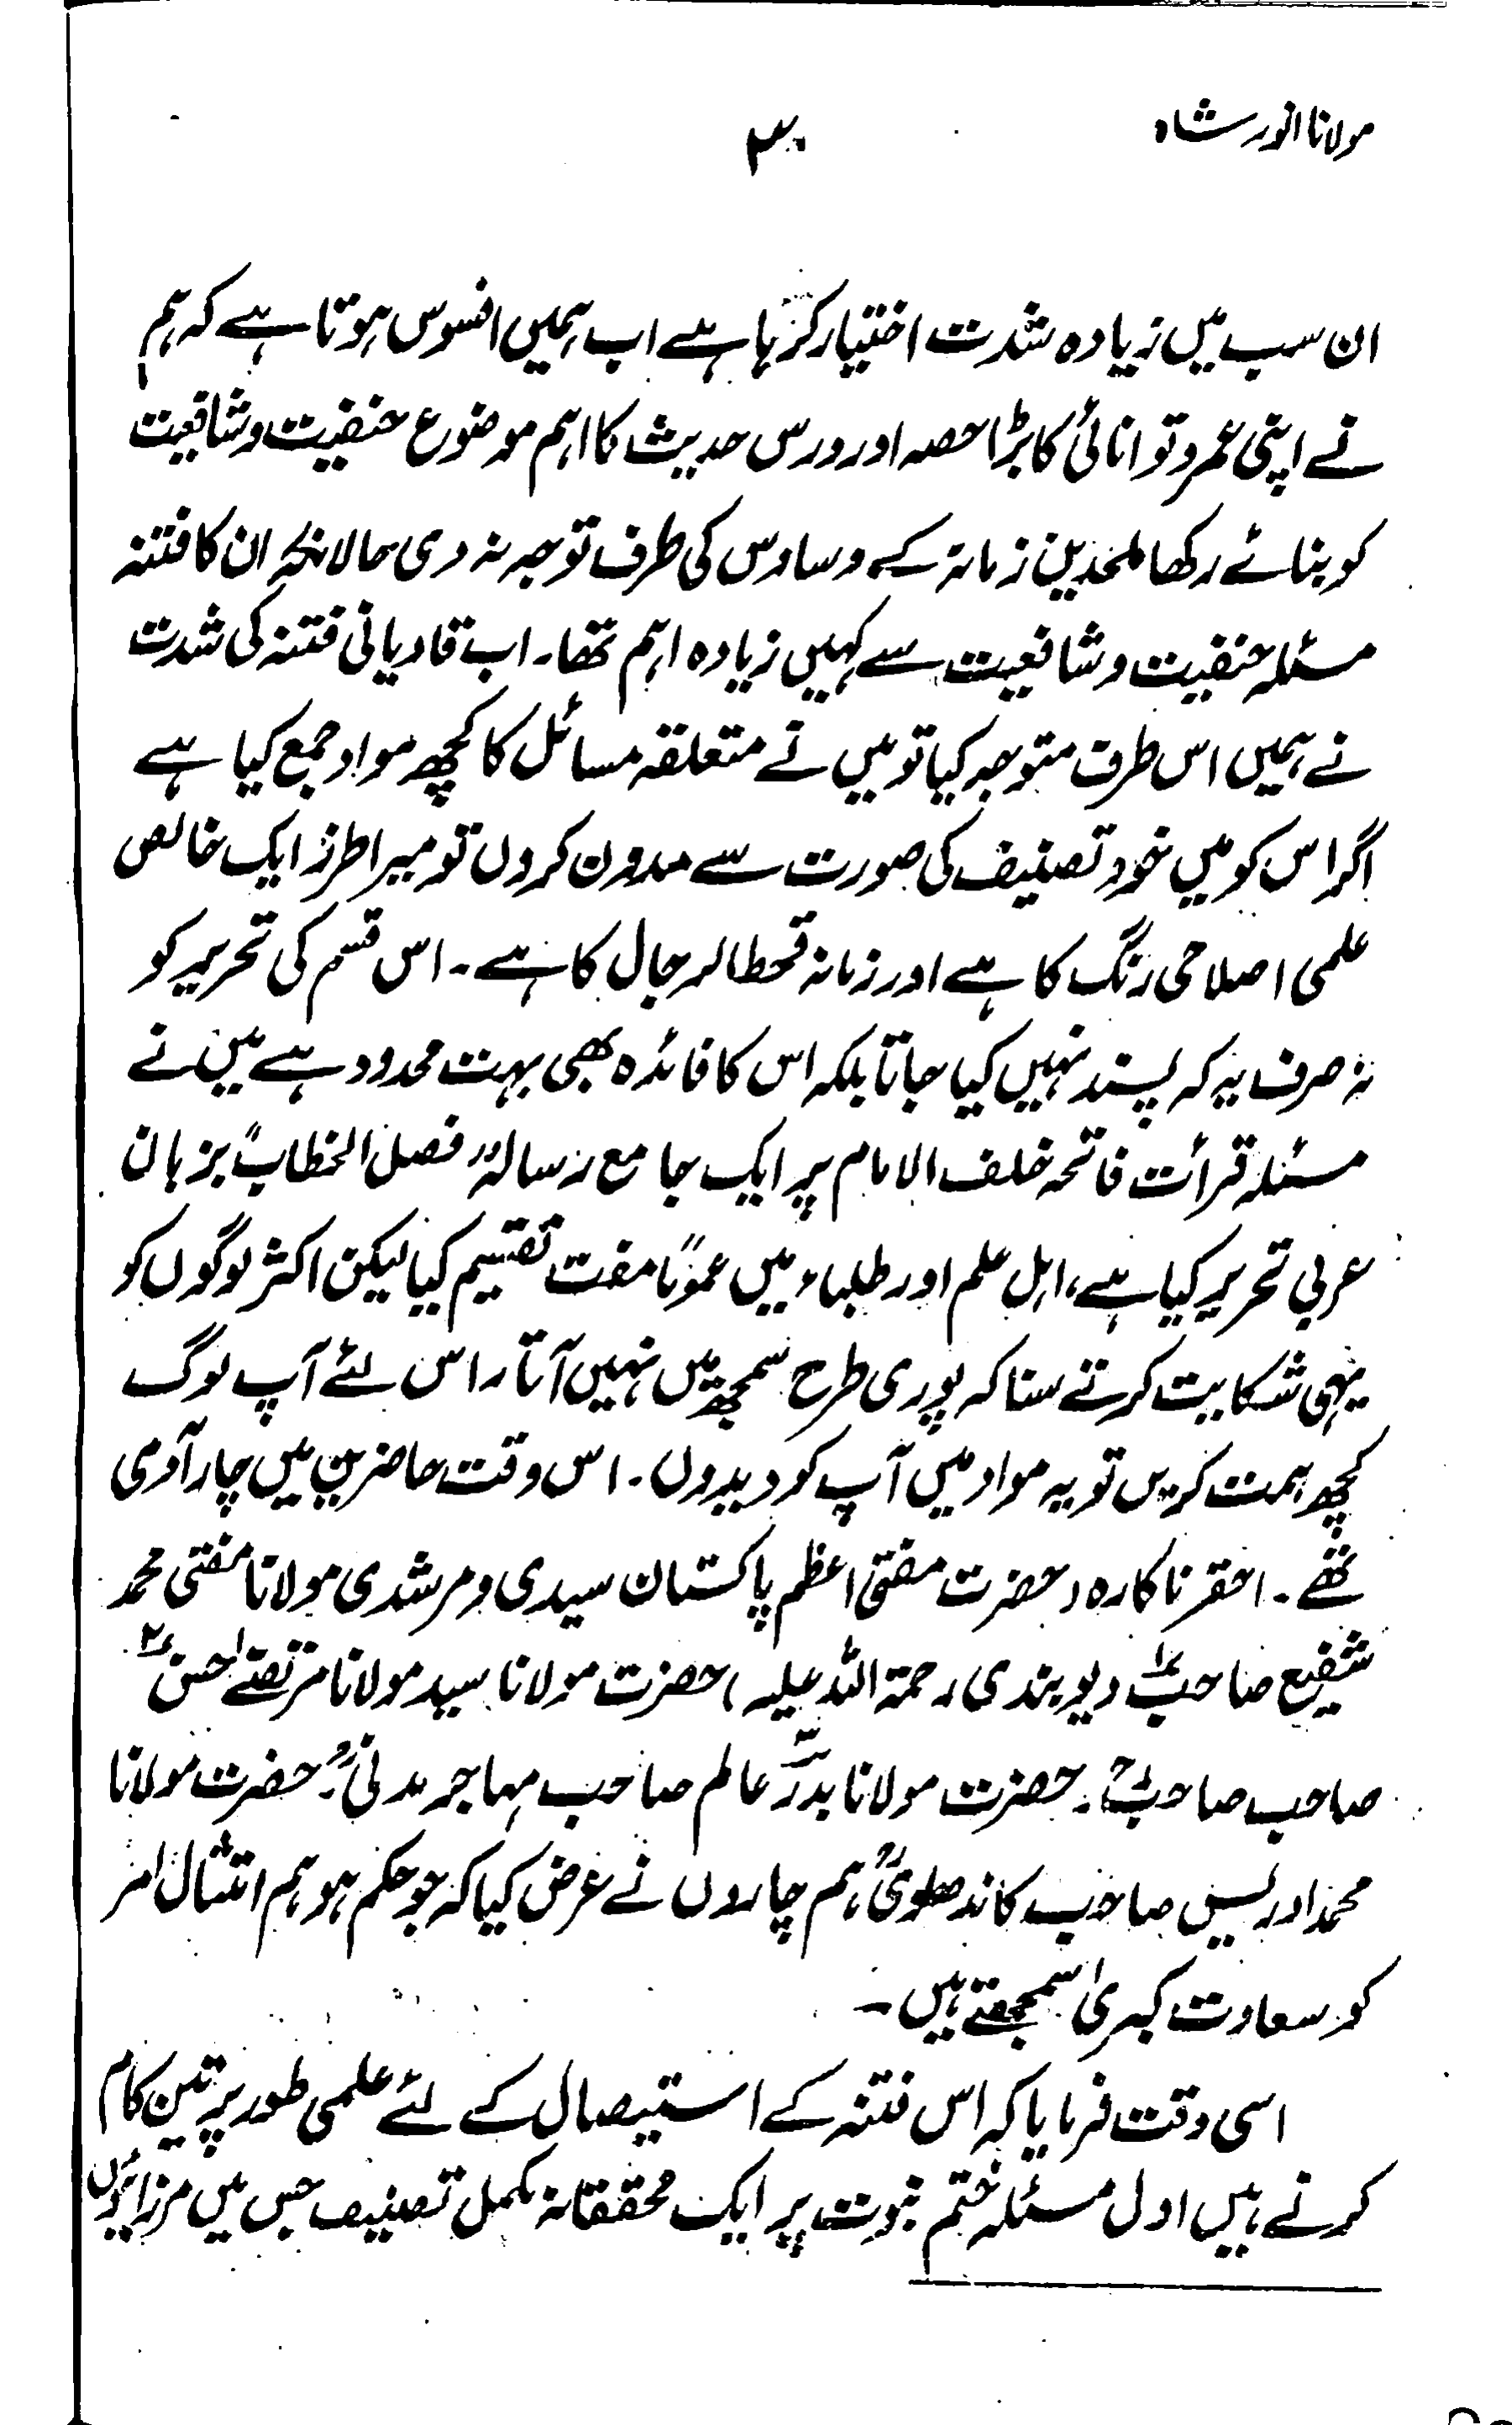 مولانا انور شاہ
۳۰
ان سب میں زیادہ شدت اختیار کر رہا ہے اب ہمیں افسوس ہوتا ہے کہ ہم
نے اپنی عمر و توانائی کا بڑا حصہ اور درس حدیث کا اہم موضوع حنفیت و شافعیت
کو بنائے رکھا ملحدین زمانہ کے وساوس کی طرف توجہ نہ دی حالانکہ ان کا فتنہ
مسئلہ حنفیت و شافعیت سے کہیں زیادہ اہم تھا۔ اب قادیانی فتنہ کی شدت
نے ہمیں اس طرف متوجہ کیا تو میں نے متعلقہ مسائل کا کچھ مواد جمع کیا ہے
اگر اس کو میں خود تصنیف کی صورت سے مدون کروں تو میرا طرز ایک خالص
علمی اصلاحی رنگ کا ہے اور زمانہ قحط الرجال کا ہے۔ اس قسم کی تحریر کو
نہ صرف یہ کہ پسند نہیں کیا جاتا بلکہ اس کا فائدہ بھی بہت محدود ہے میں نے
مسئلہ قرأت فاتحہ خلف الامام پر ایک جامع رسالہ "فصل الخطاب" بزبان
عربی تحریر کیا ہے، اہل علم اور طلباء میں عموماً مفت تقسیم کیا لیکن اکثر لوگوں کو
یہی شکایت کرتے سنا کہ پوری طرح سمجھ میں نہیں آتا، اس لئے آپ لوگ
کچھ ہمت کریں تو یہ مواد میں آپ کو دیدوں۔ اس وقت حاضرین میں چار آدمی
تھے۔ احقر ناکارہ، حضرت مفتی اعظم پاکستان سیدی و مرشدی مولانا مفتی محمد
شفیع صاحب دیوبندی رحمۃ اللہ علیہ، حضرت مولانا سید مولانا مرتضےٰ حسن
صاحب صاحبؒ۔ حضرت مولانا بدر عالم صاحب مہاجر مدنیؒ۔ حضرت مولانا
محمد ادریس صاحب کاندھلویؒ، ہم چاروں نے عرض کیا کہ جو حکم ہو ہم امتثال امر
کو سعادت کبریٰ سمجھتے ہیں۔
اسی وقت فرمایا کہ اس فتنہ کے استیصال کے لئے علمی طور پر تین کام
کرنے ہیں اول مسئلہ ختم نبوت پر ایک محققانہ مکمل تصنیف جس میں مرزائیوں